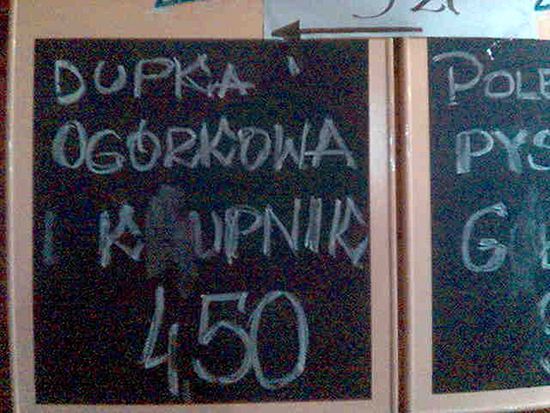 DUPKA
OGÓRKOWA
I KRUPNIK
4,50
POLE
PYS
G